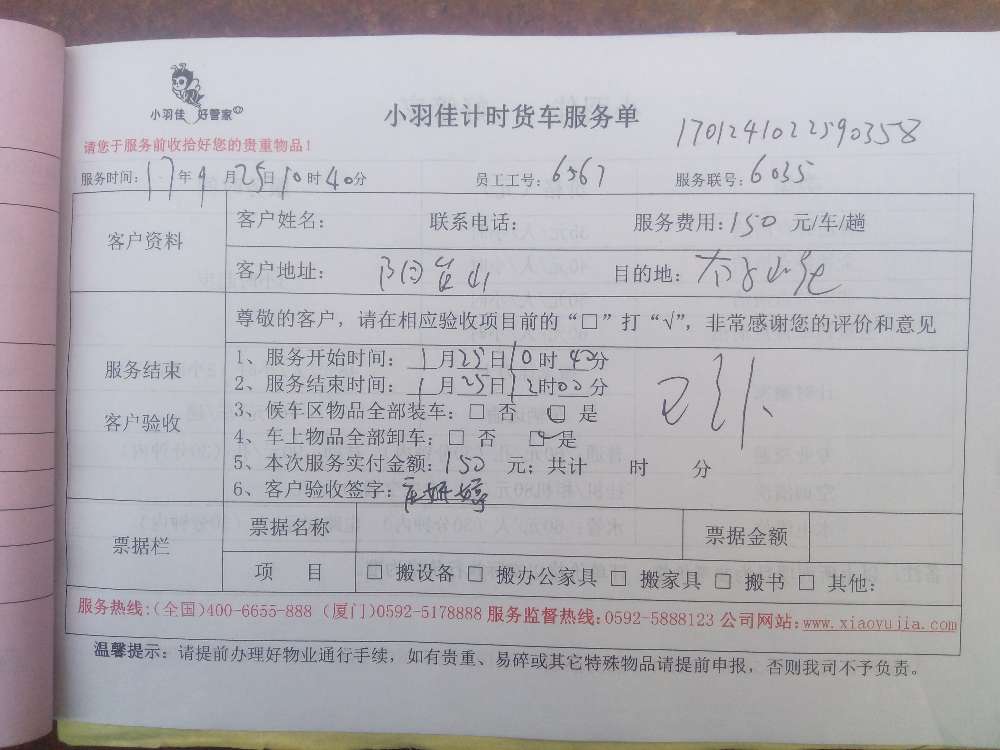 小羽佳 好管家
小羽佳计时货车服务单
1701241022590358
请您于服务前收拾好您的贵重物品！
服务时间：17年 月25日10时40分 员工工号：6567 服务联号：6035
客户资料
客户姓名： 联系电话： 服务费用：150 元/车/趟
客户地址： 目的地：
服务结束
客户验收
尊敬的客户，请在相应验收项目前的“□”打“√”，非常感谢您的评价和意见
1、服务开始时间：1月25日10时40分
2、服务结束时间：1月25日12时00分
3、候车区物品全部装车：□ 否 □ 是
4、车上物品全部卸车：□ 否 □ 是
5、本次服务实付金额：150 元；共计 时 分
6、客户验收签字：
票据栏
票据名称 票据金额
项 目 □ 搬设备 □ 搬办公家具 □ 搬家具 □ 搬书 □ 其他：
服务热线：(全国)400-6655-888 (厦门)0592-5178888 服务监督热线：0592-5888123 公司网站：www.xiaoyujia.com
温馨提示：请提前办理好物业通行手续，如有贵重、易碎或其它特殊物品请提前申报，否则我司不予负责。